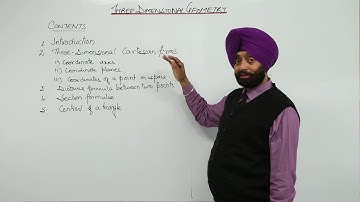 THREE DIMENSIONAL GEOMETRY
CONTENTS
1 Introduction
2 Three-Dimensional Cartesian forms
i) Coordinate axes
ii) Coordinate planes
iii) Coordinates of a point in space
3 Distance formula between two points
4 Section formulas
5 Centroid of a triangle